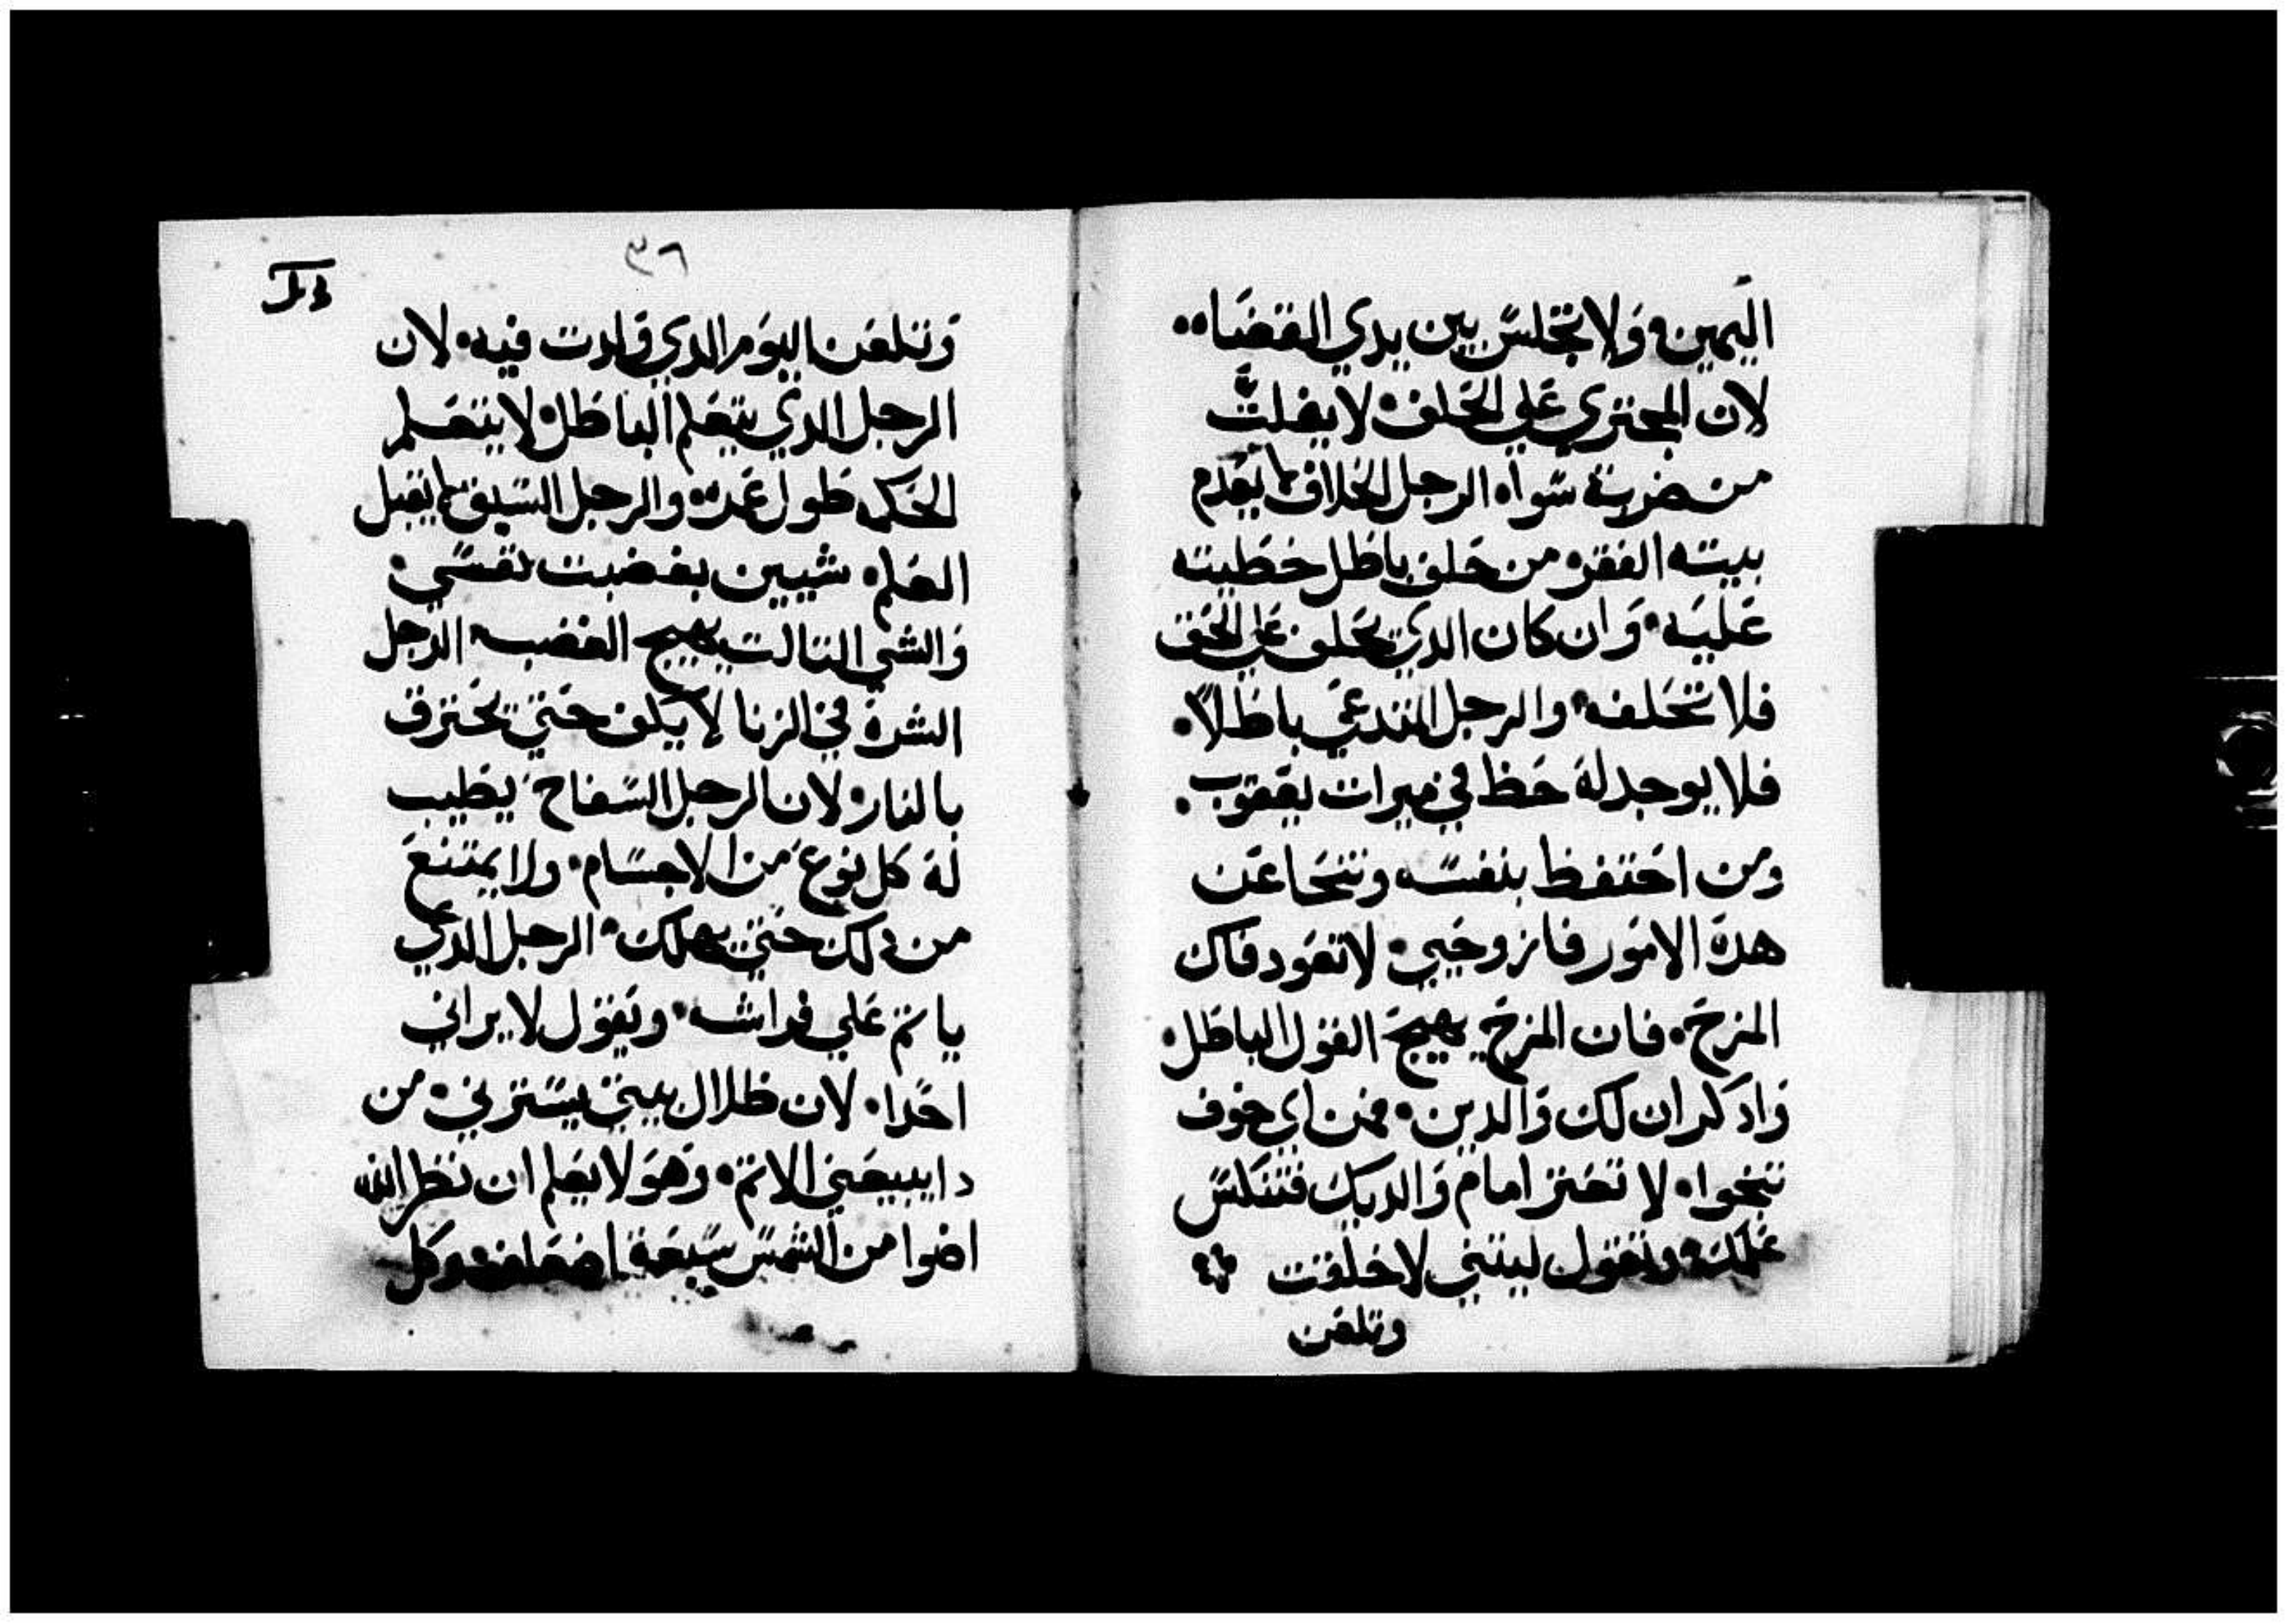 اليمين ولا تجلس بين يدي القضاه
لان المجتري علي الحلف لا يفلت
من ضربة سواه الرجل الحلاف لا يعدم
بيته الفقر من حلف باطل خطيته
عليه وان كان الدي يحلف علي الحق
فلا تحلفه والرجل المتدعي باطلاً
فلا يوجد له حظ في ميرات يعقوب
ومن احتفظ بنفسه وتنحا عن
هدة الامور فانزوحيي لا تعود فاك
المزح فان المزح يهيج القول الباطل
وادكر ان لك والدين فمن اي خوف
تنجوا لا تعتز امام والديك فتنكس
عملك وتقول ليتني لا خلقت
وتلعن
٣٦
وتلعن اليوم الدي ولدت فيه لان
الرجل الدي يتعلم الباطل لا يتعلم
الحكمه طول عمره والرجل السيف لا يقبل
العلم شيين بغضبت نفسي
والشي التالت يهيج الغضب الرجل
الشرة في الزنا لا يكف حتي يحترق
بالنار لان الرجل السفاح يطيب
له كل نوع من الاجسام ولا يمتنع
من دلك حتي يهلك الرجل الدي
ياتم علي فراشه ويقول لا يراني
احدا لان ظلال بيتي يسترني من
دا يبيعني الاتم وهو لا يعلم ان نظر الله
اضوا من الشمس سبعة اضعاف وكل